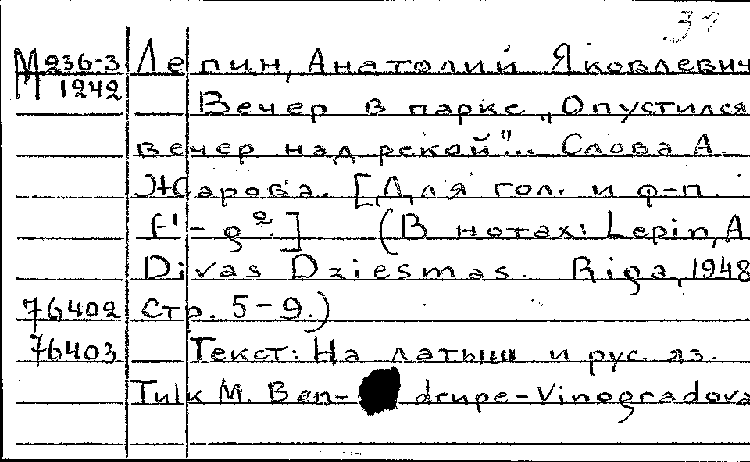 37
М 936-3 Лепин, Анатолий Яковлевич
М 1242 Вечер в парке „Опустился
вечер над рекой"... Слова А.
Жарова. [Для гол. и ф-п.
f¹ - g²] (В нотах: Lepin, A
Divas Dziesmas. Riga, 1948
76402 Стр. 5-9.)
76403 Текст: На латыш и рус яз.
Tulk M. Ben- drupe-Vinogradova